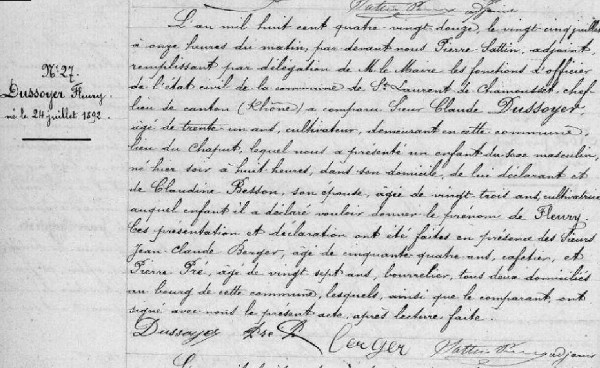 N° 27.
Dussoyer Fleury
né le 24 juillet 1892.
L'an mil huit cent quatre vingt douze, le vingt cinq juillet
à onze heures du matin, par devant nous Pierre adjoint,
remplissant par délégation de M. le Maire les fonctions d'officier
de l'état civil de la commune de St Laurent de Chamousset, chef-
lieu de canton (Rhône) a comparu Sieur Claude Dussoyer,
âgé de trente un ans, cultivateur, demeurant en cette commune,
lieu du Chaput, lequel nous a présenté un enfant du sexe masculin,
né hier soir à huit heures, dans son domicile, de lui déclarant et
de Claudine Bosson, son épouse, âgée de vingt trois ans, cultivatrice
auquel enfant il a déclaré vouloir donner le prénom de Fleury.
Ces présentation et déclaration ont été faites en présence des Sieurs
Jean Claude Berger, âgé de cinquante quatre ans, cafetier, et
Pierre Pré, âgé de vingt sept ans, bourrelier, tous deux domiciliés
au bourg de cette commune, lesquels, ainsi que le comparant, ont
signé avec nous le présent acte, après lecture faite.
Dussoyer Pré P Berger adjoint